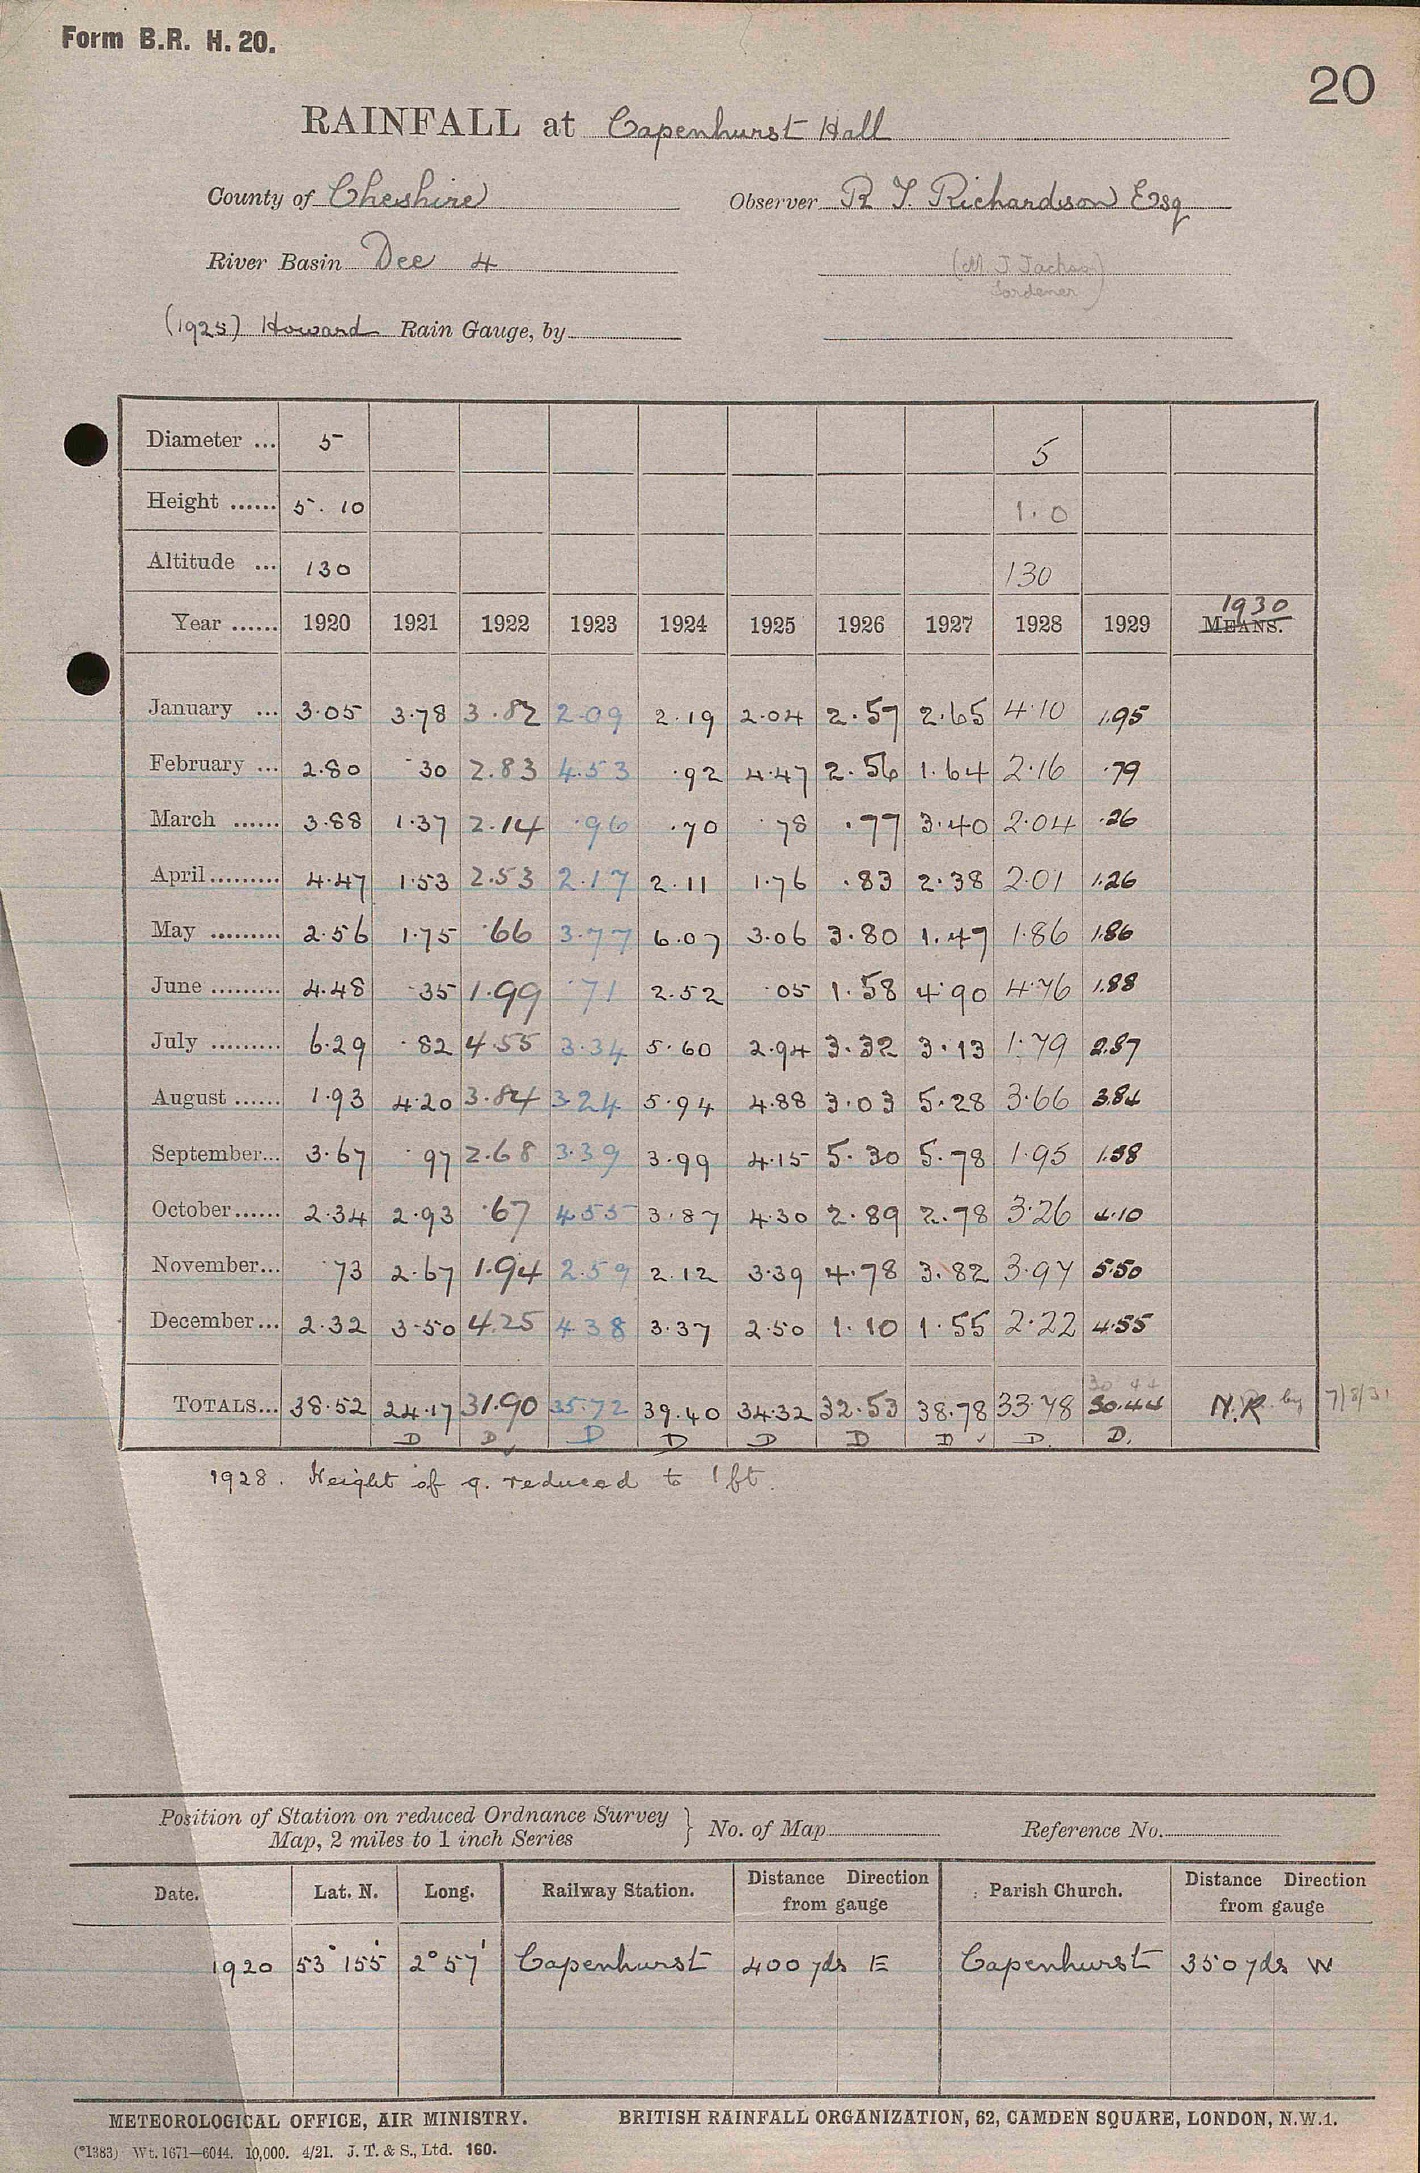 Form B.R. H. 20.
20
RAINFALL at Capenhurst Hall
County of Cheshire Observer R T. Richardson Esq
River Basin Dee 4 (M. J Jackson)
Gardener
(1925) Howard Rain Gauge, by
Diameter ... 5 5
Height ...... 5. 10 1. 0
Altitude ... 130 130
Year ...... 1920 1921 1922 1923 1924 1925 1926 1927 1928 1929 MEANS. 1930
January ... 3.05 3.78 3.82 2.09 2.19 2.04 2.57 2.65 4.10 1.95
February ... 2.80 .30 2.83 4.53 .92 4.47 2.56 1.64 2.16 .79
March ...... 3.88 1.37 2.14 .96 .70 .78 .77 3.40 2.04 .26
April ......... 4.47 1.53 2.53 2.17 2.11 1.76 .83 2.38 2.01 1.26
May ......... 2.56 1.75 .66 3.77 6.07 3.06 3.80 1.47 1.86 1.86
June ......... 4.48 .35 1.99 .71 2.52 .05 1.58 4.90 4.76 1.88
July ......... 6.29 .82 4.55 3.34 5.60 2.94 3.32 3.13 1.79 2.87
August ...... 1.93 4.20 3.84 3.24 5.94 4.88 3.03 5.28 3.66 3.84
September... 3.67 .97 2.68 3.39 3.99 4.15 5.30 5.78 1.95 1.58
October...... 2.34 2.93 .67 4.55 3.87 4.30 2.89 2.78 3.26 4.10
November... .73 2.67 1.94 2.59 2.12 3.39 4.78 3.82 3.97 5.50
December... 2.32 3.50 4.25 4.38 3.37 2.50 1.10 1.55 2.22 4.55
30 44
TOTALS... 38.52 24.17 31.90 35.72 39.40 34.32 32.53 38.78 33.78 30.44 N.R. by 7/8/31
D D ✓ D D D D D ✓ D. D.
1928. Height of g. reduced to 1 ft.
Position of Station on reduced Ordnance Survey
Map, 2 miles to 1 inch Series } No. of Map Reference No.
Date. Lat. N. Long. Railway Station. Distance Direction from gauge Parish Church. Distance Direction from gauge
1920 53° 155' 2° 57' Capenhurst 400 yds E Capenhurst 350 yds W
METEOROLOGICAL OFFICE, AIR MINISTRY. BRITISH RAINFALL ORGANIZATION, 62, CAMDEN SQUARE, LONDON, N.W.1.
(*1383) Wt. 1671—6044. 10,000. 4/21. J. T. & S., Ltd. 160.